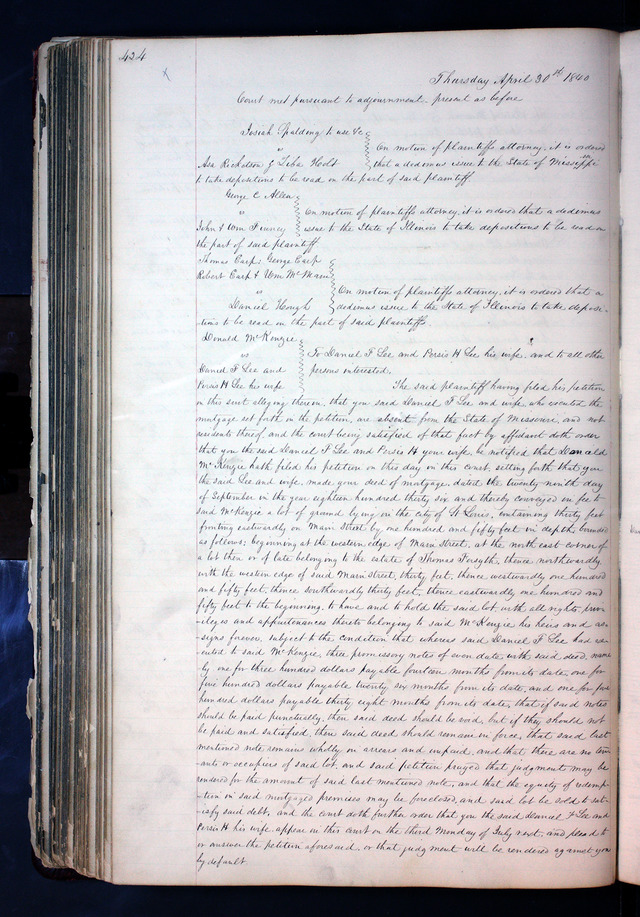 424
Thursday April 30th 1840
Court met pursuant to adjournment, present as before
Josiah Spalding to use &c
vs
Asa Ricketson & Ziba Holt
On motion of plaintiffs attorney, it is ordered
that a dedimus issue to the State of Mississippi
to take depositions to be read on the part of said plaintiff
George C Allen
vs
John & Wm Finney
On motion of plaintiffs attorney, it is ordered that a dedimus
issue to the State of Illinois to take depositions to be read on
the part of said plaintiff
Thomas Earp, George Earp
Robert Earp & Wm McMain
vs
Daniel Hough
On motion of plaintiffs attorney, it is ordered that a
dedimus issue to the State of Illinois to take deposi-
tions to be read on the part of said plaintiffs.
Donald McKenzie
vs
Daniel F Lee and
Persis H Lee his wife
To Daniel F Lee and Persis H Lee his wife, and to all other
persons interested.
The said plaintiff having filed his petition
in this suit alleging therein, that you said Daniel F Lee and wife, who executed the
mortgage set forth in the petition, are absent from the State of Missouri, and not
residents thereof, and the court being satisfied of that fact by affidavit doth order
that you the said Daniel F Lee and Persis H your wife, be notified that Donald
McKenzie hath filed his petition on this day in this court, setting forth that you
the said Lee and wife, made your deed of mortgage, dated the twenty ninth day
of September in the year eighteen hundred thirty six, and thereby conveyed in fee to
said McKenzie a lot of ground lying in the city of St Louis, containing thirty feet
fronting eastwardly on Main street by one hundred and fifty feet in depth, bounded
as follows; beginning at the western edge of Main street, at the north east corner of
a lot then or of late belonging to the estate of Thomas Forsyth, thence northwardly
with the western edge of said Main street, thirty feet, thence westwardly one hundred
and fifty feet, thence southwardly thirty feet, thence eastwardly one hundred and
fifty feet to the beginning, to have and to hold the said lot with all rights, priv-
ileges and appurtenances thereto belonging to said McKenzie his heirs and as-
signs forever, subject to the condition that whereas said Daniel F Lee had exe-
cuted to said McKenzie, three promissory notes of even date with said deed, name-
ly one for three hundred dollars payable fourteen months from its date, one for
five hundred dollars payable twenty six months from its date, and one for five
hundred dollars payable thirty eight months from its date, that if said notes
should be paid punctually, then said deed should be void, but if they should not
be paid and satisfied, then said deed should remain in force, that said last
mentioned note, remains wholly in arrears and unpaid, and that there are no ten-
ants or occupiers of said lot, and said petition prayed that judgment may be
rendered for the amount of said last mentioned note, and that the equity of redemp-
tion in said mortgaged premises may be foreclosed, and said lot be sold to sat-
isfy said debt, and the court doth further order that you the said Daniel F Lee and
Persis H his wife, appear in this court on the third Monday of July next, and plead to
or answer the petition aforesaid, or that judgment will be rendered against you
by default